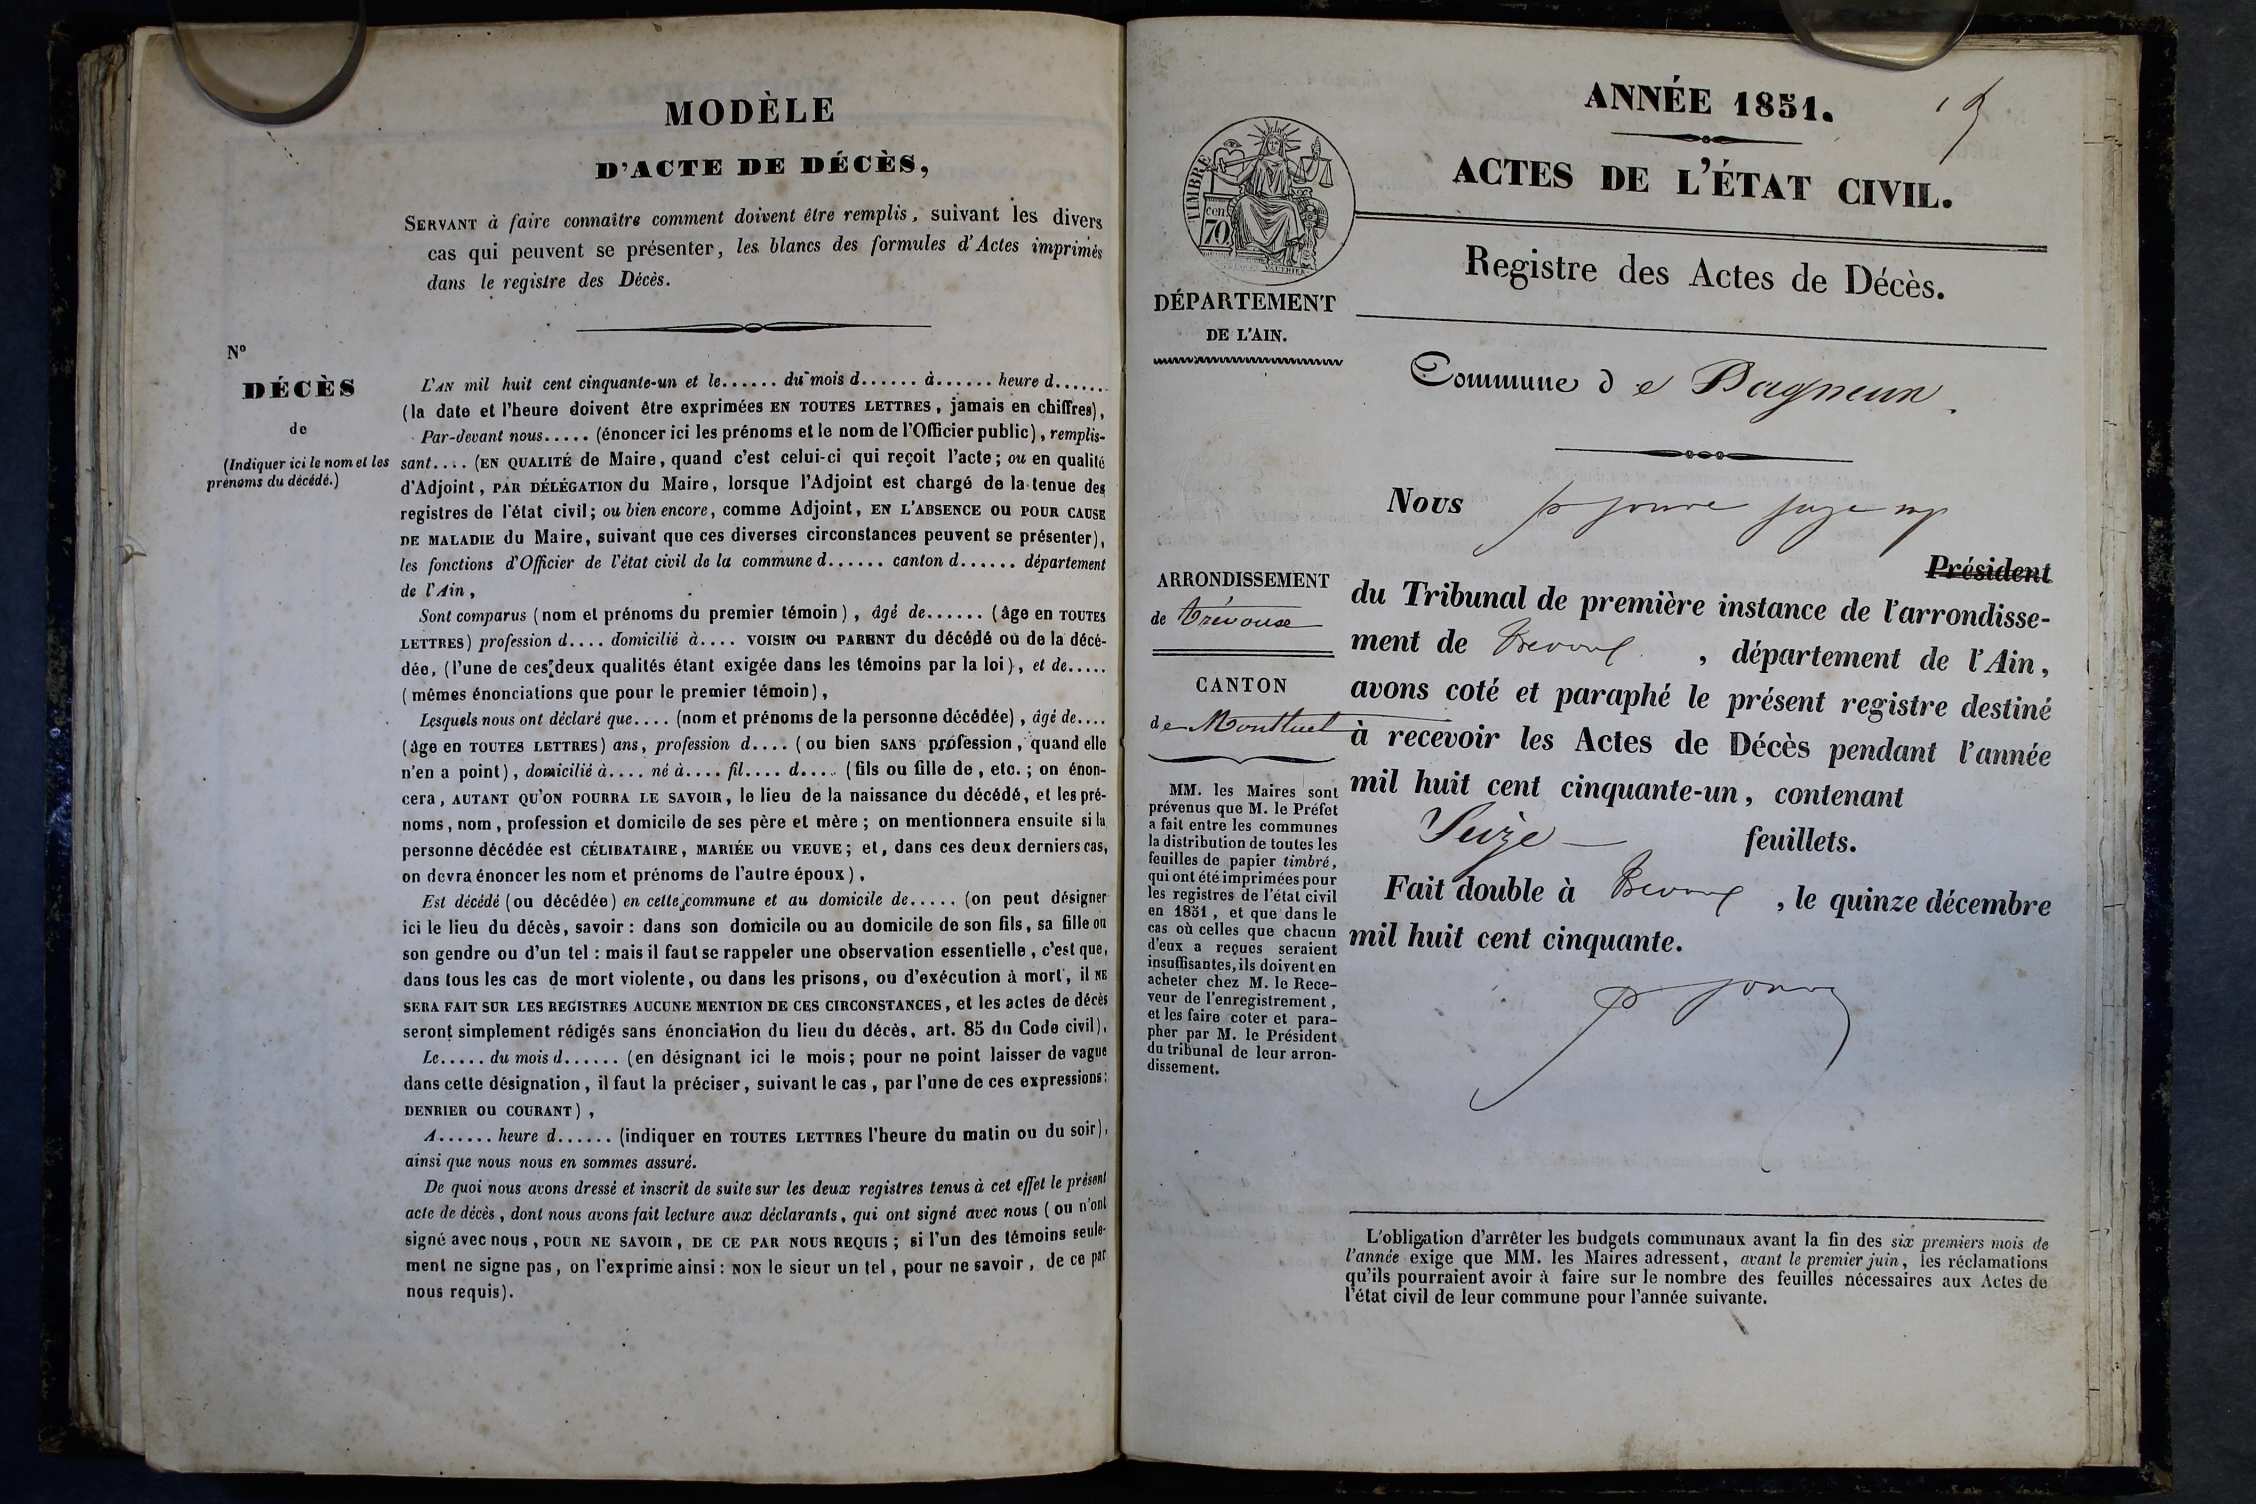 MODÈLE
D'ACTE DE DÉCÈS,
SERVANT à faire connaître comment doivent être remplis, suivant les divers
cas qui peuvent se présenter, les blancs des formules d'Actes imprimés
dans le registre des Décès.
N°
DÉCÈS
de
(Indiquer ici le nom et les
prénoms du décédé.)
L'AN mil huit cent cinquante-un et le...... du mois d...... à...... heure d......
(la date et l'heure doivent être exprimées EN TOUTES LETTRES, jamais en chiffres),
Par-devant nous..... (énoncer ici les prénoms et le nom de l'Officier public), remplis-
sant.... (EN QUALITÉ de Maire, quand c'est celui-ci qui reçoit l'acte; ou en qualité
d'Adjoint, PAR DÉLÉGATION du Maire, lorsque l'Adjoint est chargé de la tenue des
registres de l'état civil; ou bien encore, comme Adjoint, EN L'ABSENCE OU POUR CAUSE
DE MALADIE du Maire, suivant que ces diverses circonstances peuvent se présenter),
les fonctions d'Officier de l'état civil de la commune d...... canton d...... département
de l'Ain,
Sont comparus (nom et prénoms du premier témoin), âgé de...... (âge en TOUTES
LETTRES) profession d.... domicilié à.... VOISIN OU PARENT du décédé ou de la décé-
dée, (l'une de ces deux qualités étant exigée dans les témoins par la loi), et de.....
(mêmes énonciations que pour le premier témoin),
Lesquels nous ont déclaré que.... (nom et prénoms de la personne décédée), âgé de....
(âge en TOUTES LETTRES) ans, profession d.... (ou bien SANS profession, quand elle
n'en a point), domicilié à.... né à.... fil.... d.... (fils ou fille de, etc.; on énon-
cera, AUTANT QU'ON POURRA LE SAVOIR, le lieu de la naissance du décédé, et les pré-
noms, nom, profession et domicile de ses père et mère; on mentionnera ensuite si la
personne décédée est CÉLIBATAIRE, MARIÉE OU VEUVE; et, dans ces deux derniers cas,
on devra énoncer les nom et prénoms de l'autre époux),
Est décédé (ou décédée) en cette commune et au domicile de..... (on peut désigner
ici le lieu du décès, savoir: dans son domicile ou au domicile de son fils, sa fille ou
son gendre ou d'un tel: mais il faut se rappeler une observation essentielle, c'est que,
dans tous les cas de mort violente, ou dans les prisons, ou d'exécution à mort, il NE
SERA FAIT SUR LES REGISTRES AUCUNE MENTION DE CES CIRCONSTANCES, et les actes de décès
seront simplement rédigés sans énonciation du lieu du décès, art. 85 du Code civil),
Le..... du mois d...... (en désignant ici le mois; pour ne point laisser de vague
dans cette désignation, il faut la préciser, suivant le cas, par l'une de ces expressions:
DENRIER OU COURANT),
A...... heure d...... (indiquer en TOUTES LETTRES l'heure du matin ou du soir),
ainsi que nous nous en sommes assuré.
De quoi nous avons dressé et inscrit de suite sur les deux registres tenus à cet effet le présent
acte de décès, dont nous avons fait lecture aux déclarants, qui ont signé avec nous (ou n'ont
signé avec nous, POUR NE SAVOIR, DE CE PAR NOUS REQUIS; si l'un des témoins seule-
ment ne signe pas, on l'exprime ainsi: NON le sieur un tel, pour ne savoir, de ce par
nous requis).
ANNÉE 1851.
ACTES DE L'ÉTAT CIVIL.
TIMBRE
70 cen.
Registre des Actes de Décès.
DÉPARTEMENT
DE L'AIN.
Commune de Dagneux
Nous p jouve juge
Président
ARRONDISSEMENT
de Trévoux
CANTON
de Montluel
du Tribunal de première instance de l'arrondisse-
ment de Trevoux, département de l'Ain,
avons coté et paraphé le présent registre destiné
à recevoir les Actes de Décès pendant l'année
mil huit cent cinquante-un, contenant
Seize feuillets.
Fait double à Trevoux, le quinze décembre
mil huit cent cinquante.
p jouve
MM. les Maires sont
prévenus que M. le Préfet
a fait entre les communes
la distribution de toutes les
feuilles de papier timbré,
qui ont été imprimées pour
les registres de l'état civil
en 1851, et que dans le
cas où celles que chacun
d'eux a reçues seraient
insuffisantes, ils doivent en
acheter chez M. le Rece-
veur de l'enregistrement,
et les faire coter et para-
pher par M. le Président
du tribunal de leur arron-
dissement.
L'obligation d'arrêter les budgets communaux avant la fin des six premiers mois de
l'année exige que MM. les Maires adressent, avant le premier juin, les réclamations
qu'ils pourraient avoir à faire sur le nombre des feuilles nécessaires aux Actes de
l'état civil de leur commune pour l'année suivante.